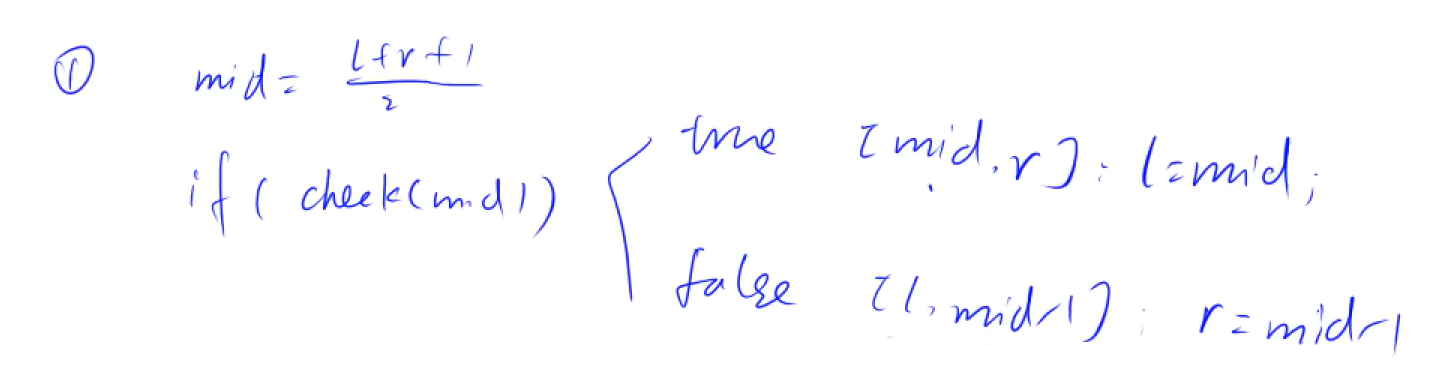 ① mid = (l+r+1)/2
if ( check(mid))
true [mid, r] : l=mid;
false [l, mid-1] : r=mid-1